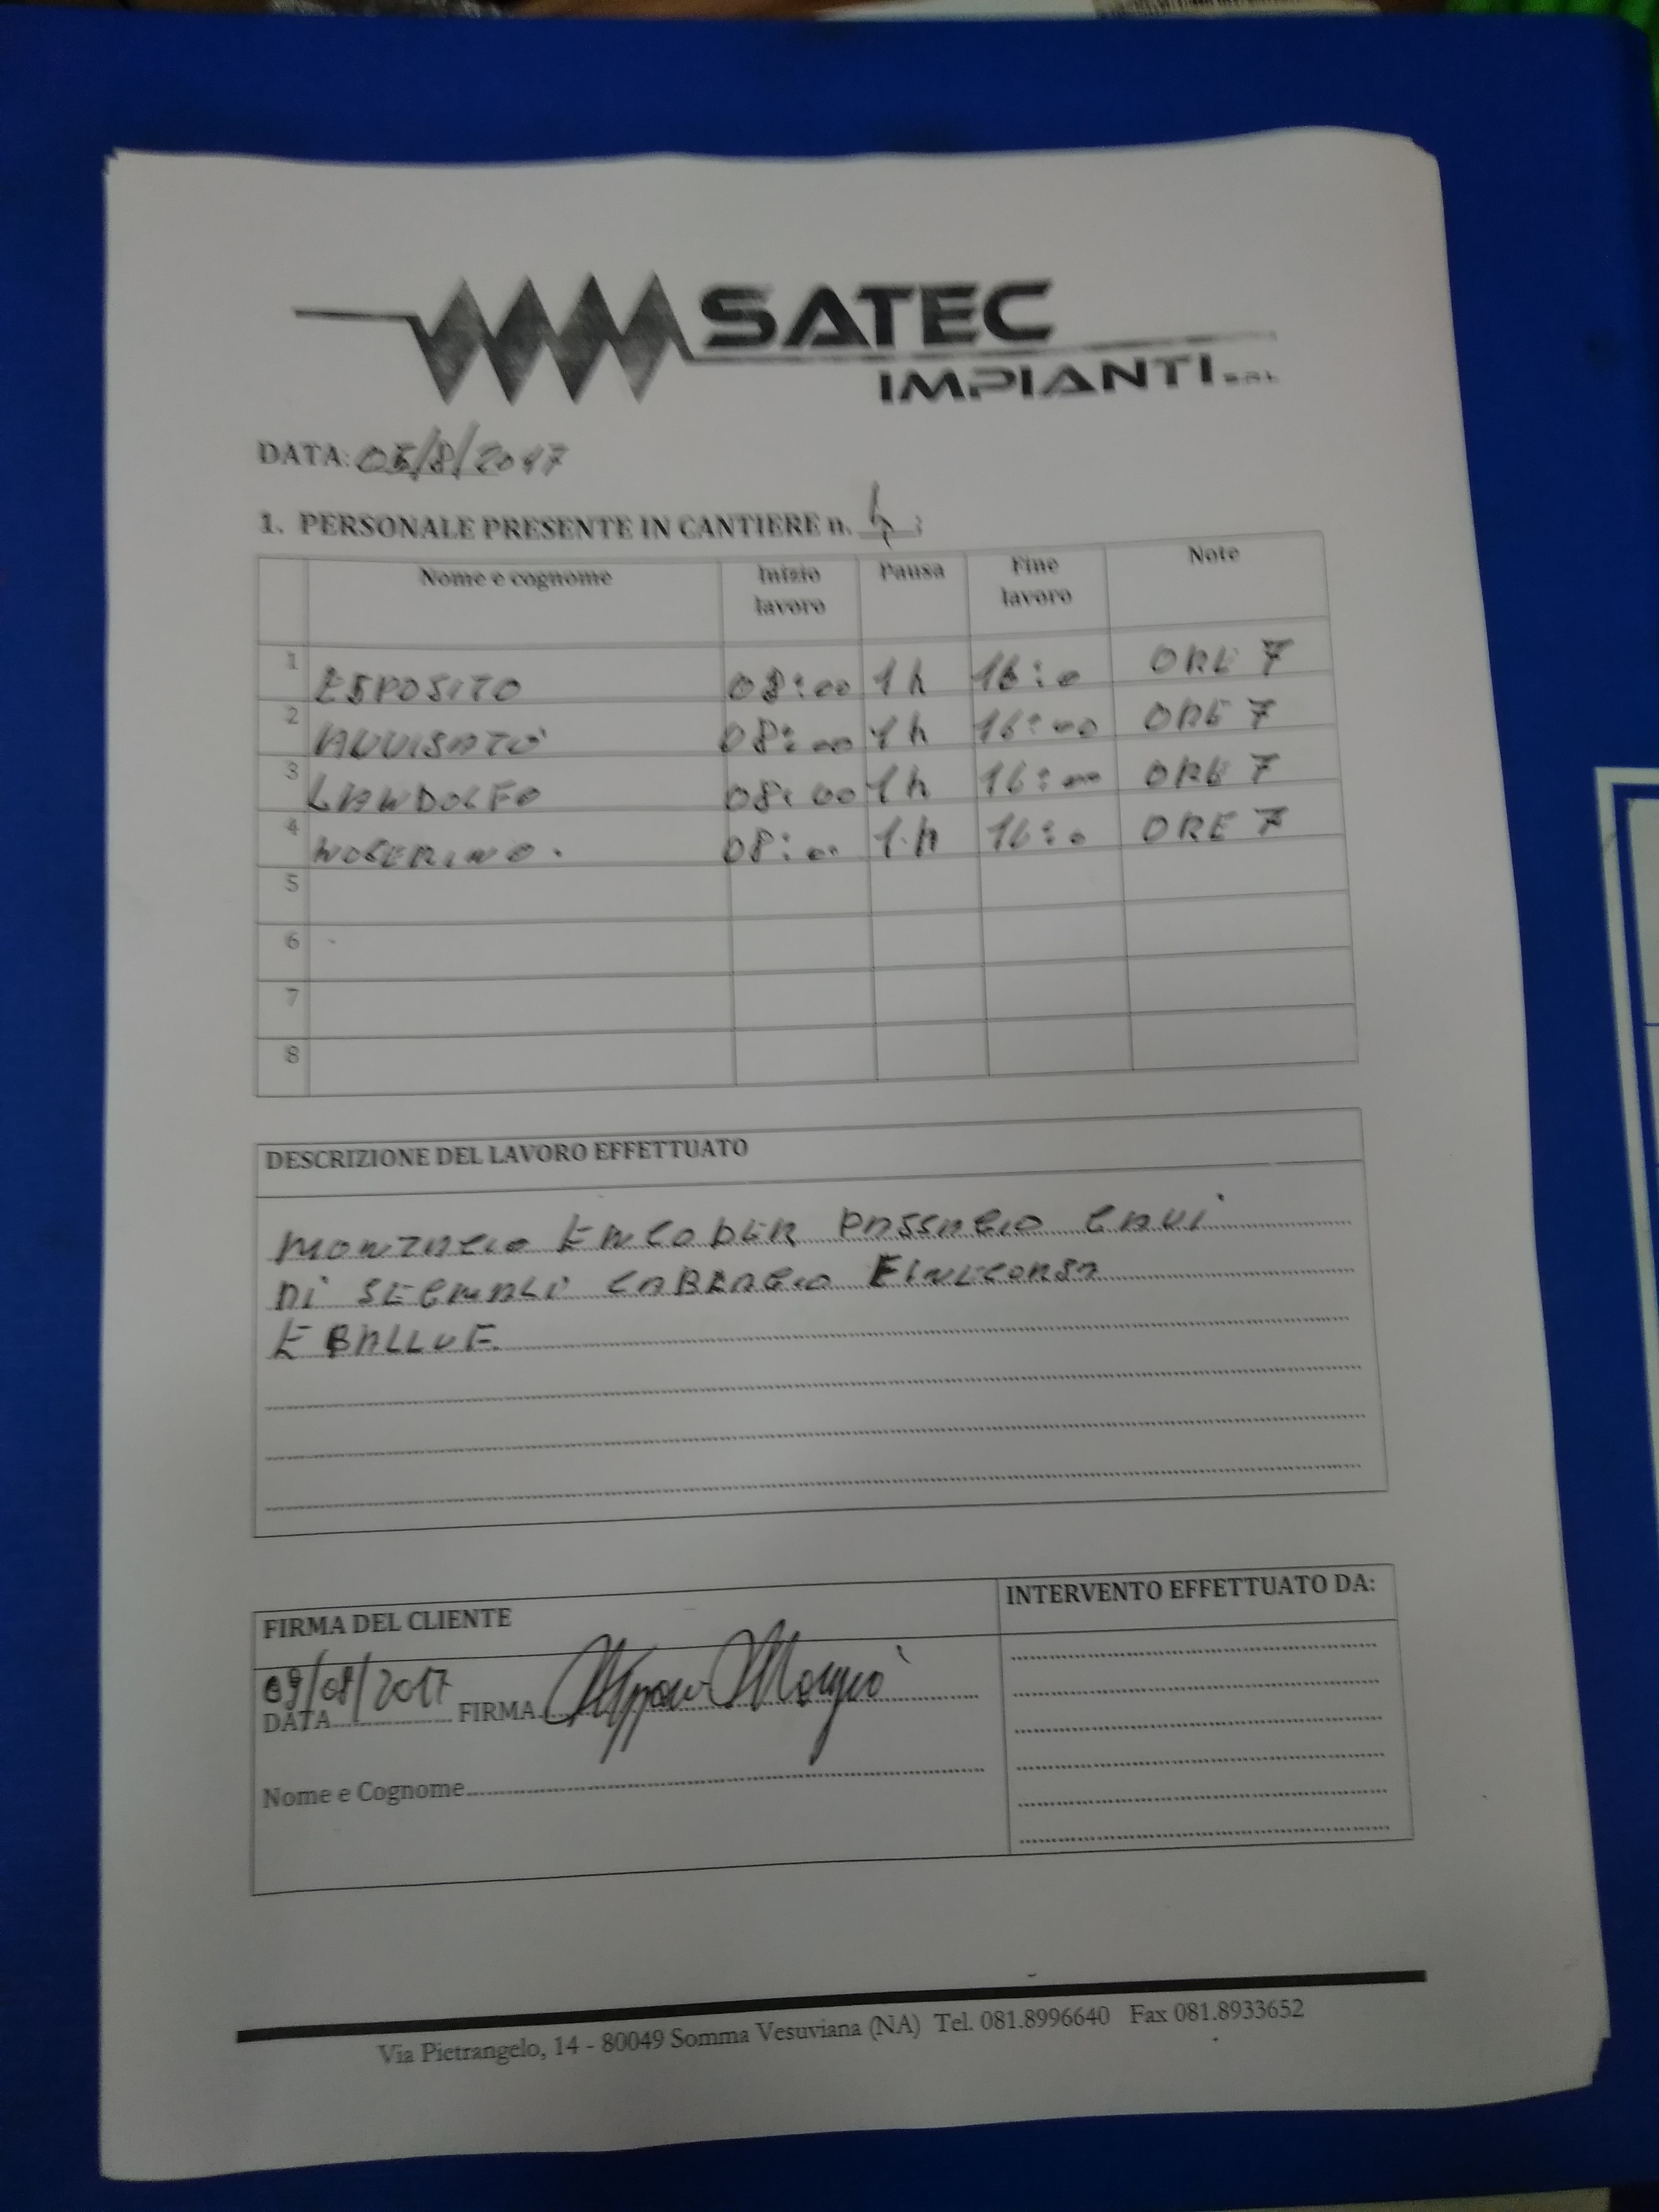 SATEC
IMPIANTI S.R.L.
DATA: 05/8/2017
1. PERSONALE PRESENTE IN CANTIERE n. 4 ;
Nome e cognome Inizio lavoro Pausa Fine lavoro Note
1 ESPOSITO 08:00 1h 16:0 ORE 7
2 AUUISATO 08:00 1h 16:00 ORE 7
3 LANDOLFO 08:00 1h 16:00 ORE 7
4 NOCERINO. 08:00 1h 16:0 ORE 7
5
6
7
8
DESCRIZIONE DEL LAVORO EFFETTUATO
MONTAGIO ENCODER PASSAGIO CAVI
DI SEGNALI CABLAGIO FINECORSA
E
FIRMA DEL CLIENTE INTERVENTO EFFETTUATO DA:
09/08/2017
DATA FIRMA
Nome e Cognome
Via Pietrangelo, 14 - 80049 Somma Vesuviana (NA) Tel. 081.8996640 Fax 081.8933652